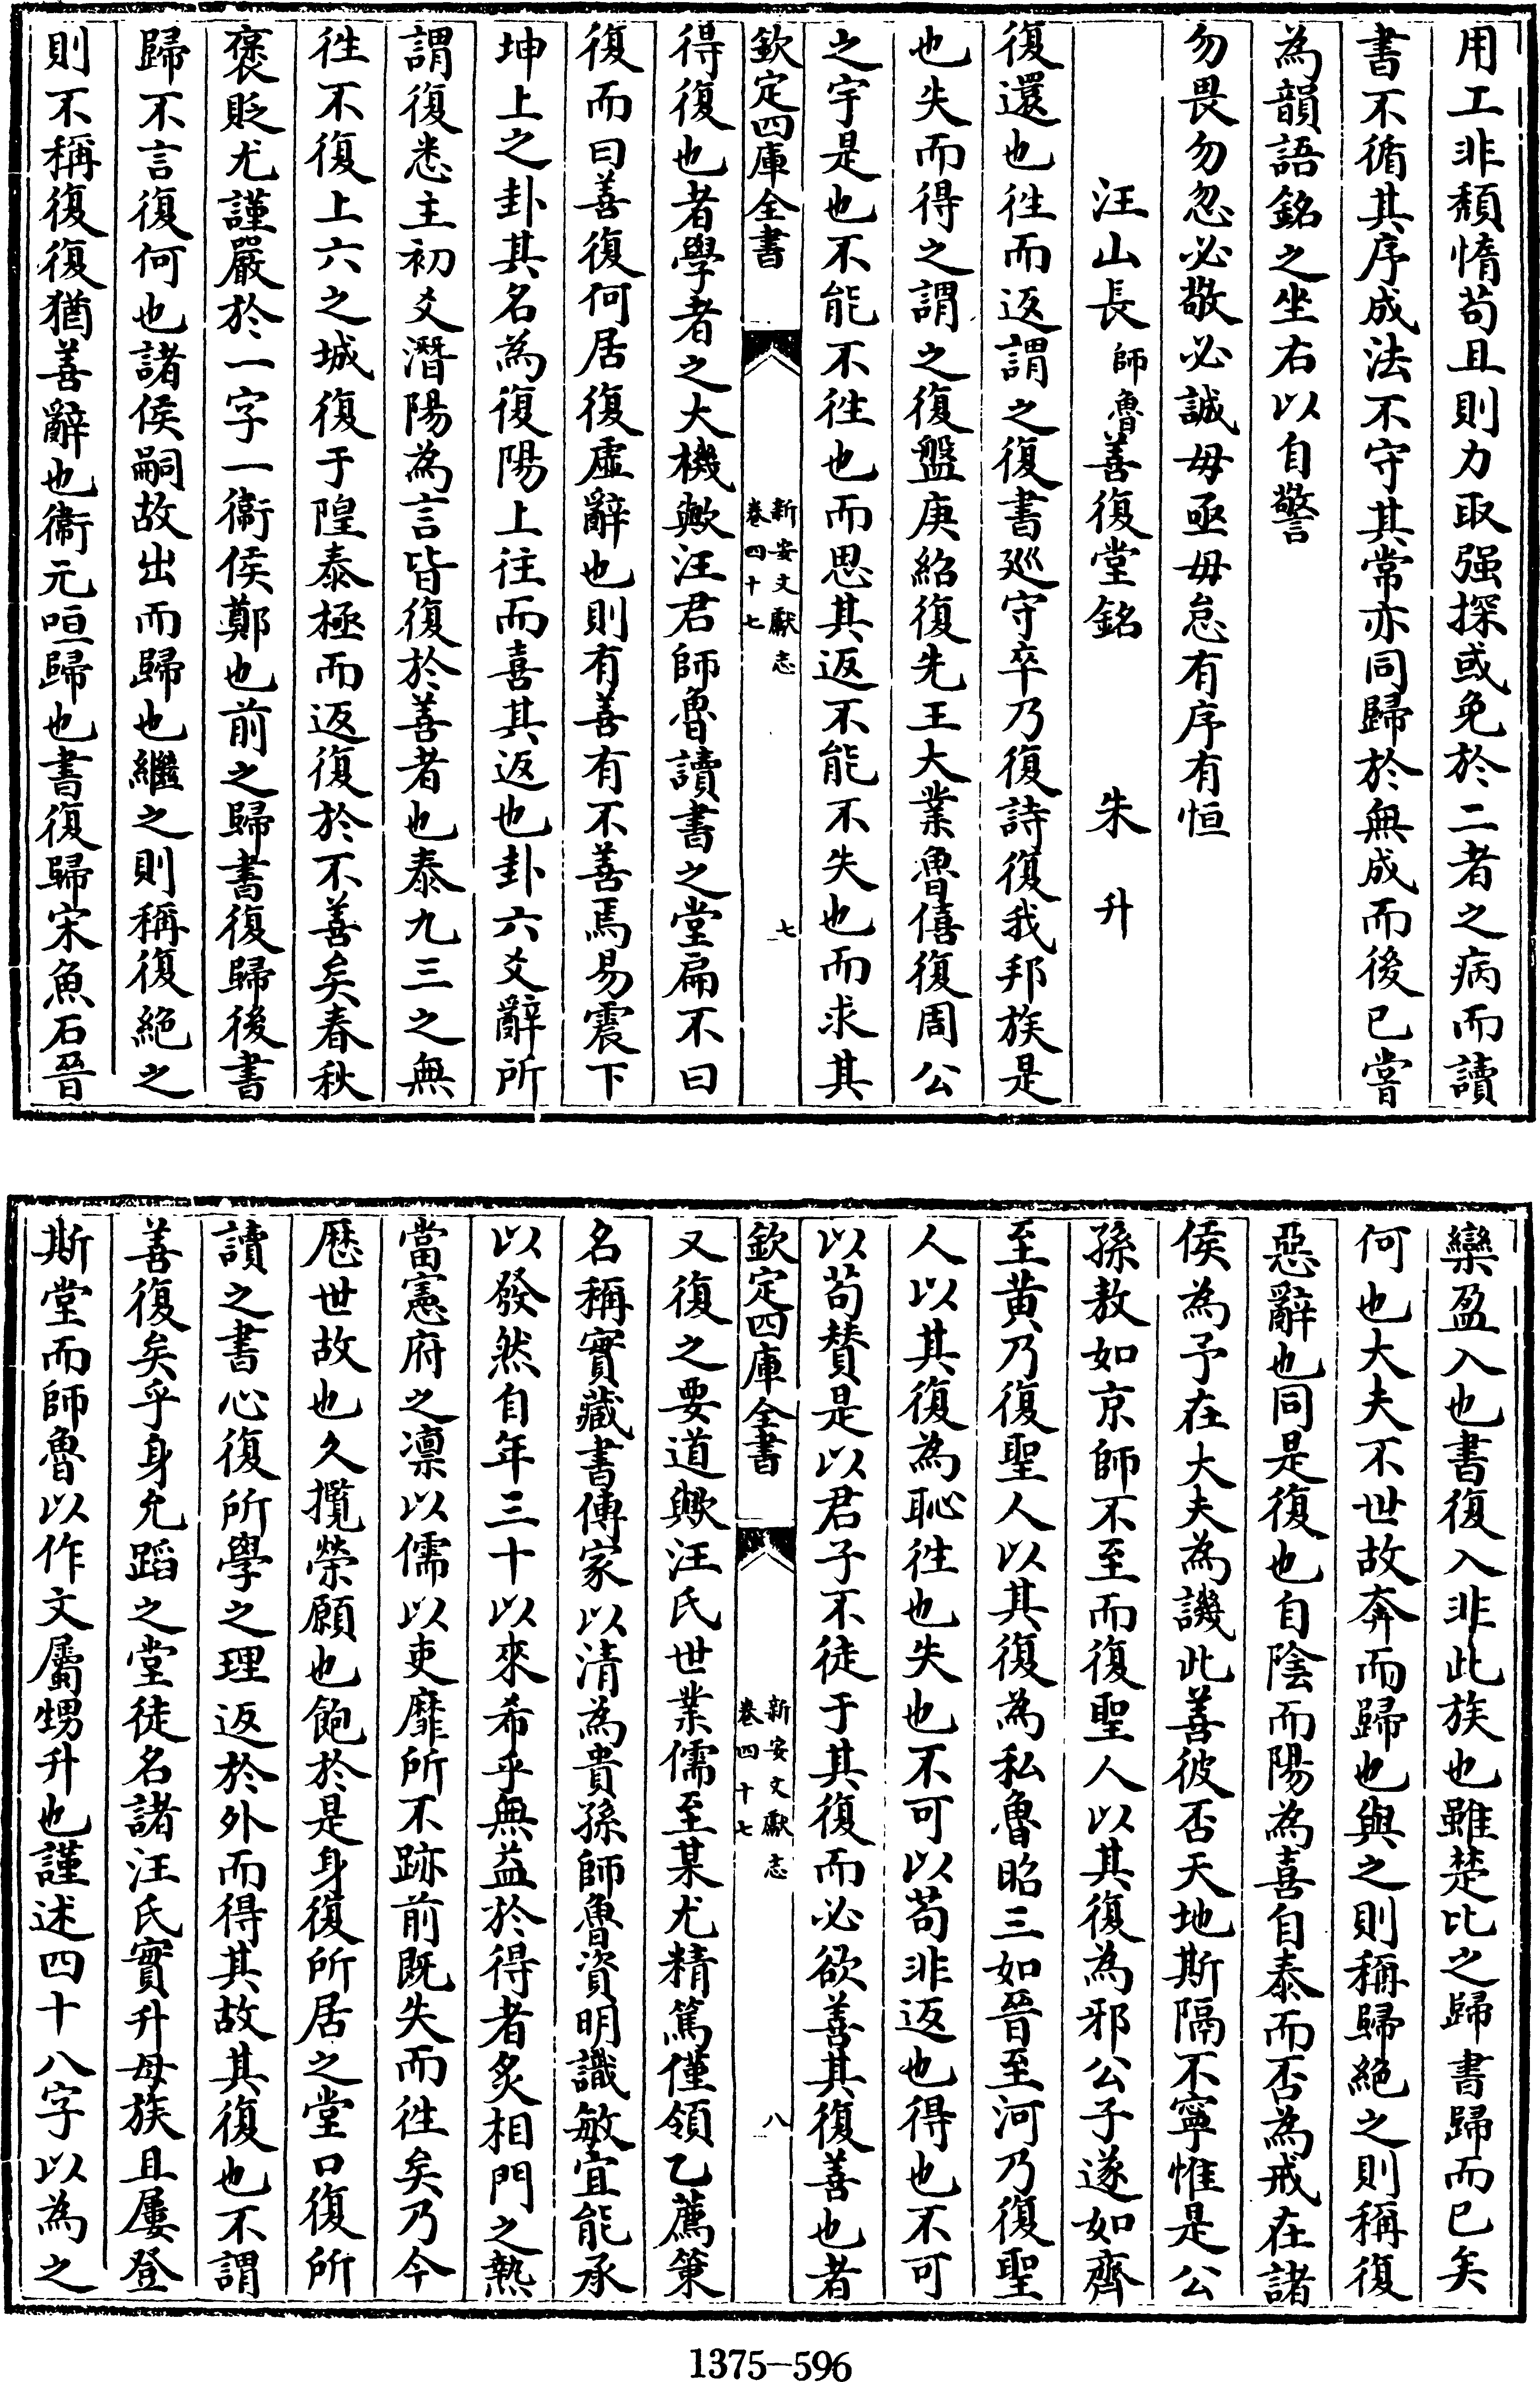 用工非頹惰苟且則力取强探或免於二者之病而讀
書不循其序成法不守其常亦同歸於無成而後已嘗
為韻語銘之坐右以自警
勿畏勿忽必敬必誠毋亟毋怠有序有恒
汪山長師魯善復堂銘 朱升
復還也徃而返謂之復書廵守卒乃復詩復我邦族是
也失而得之謂之復盤庚紹復先王大業魯僖復周公
之宇是也不能不徃也而思其返不能不失也而求其
欽定四庫全書 新安文獻志 卷四十七 七
得復也者學者之大機歟汪君師魯讀書之堂扁不曰
復而曰善復何居復虛辭也則有善有不善焉易震下
坤上之卦其名為復陽上往而喜其返也卦六爻辭所
謂復悉主初爻潛陽為言皆復於善者也泰九三之無
徃不復上六之城復于隍泰極而返復於不善矣春秋
褒貶尤謹嚴於一字一衞侯鄭也前之歸書復歸後書
歸不言復何也諸侯嗣故出而歸也繼之則稱復絶之
則不稱復復猶善辭也衞元咺歸也書復歸宋魚石晉
欒盈入也書復入非此族也雖楚比之歸書歸而已矣
何也大夫不世故奔而歸也與之則稱歸絶之則稱復
惡辭也同是復也自陰而陽為喜自泰而否為戒在諸
侯為予在大夫為譏此善彼否天地斯隔不寧惟是公
孫敖如京師不至而復聖人以其復為邪公子遂如齊
至黄乃復聖人以其復為私魯昭三如晉至河乃復聖
人以其復為恥徃也失也不可以苟非返也得也不可
以苟賛是以君子不徒于其復而必欲善其復善也者
欽定四庫全書 新安文獻志 卷四十七 八
又復之要道歟汪氏世業儒至某尤精篤僅領乙薦筆
名稱實藏書傳家以清為貴孫師魯資明識敏宜能承
以發然自年三十以來希乎無益於得者炙相門之熱
當憲府之凛以儒以吏靡所不跡前既失而徃矣乃今
厯世故也久攬榮願也飽於是身復所居之堂口復所
讀之書心復所學之理返於外而得其故其復也不謂
善復矣乎身允蹈之堂徒名諸汪氏實升母族且屢登
斯堂而師魯以作文屬甥升也謹述四十八字以為之
1375-596